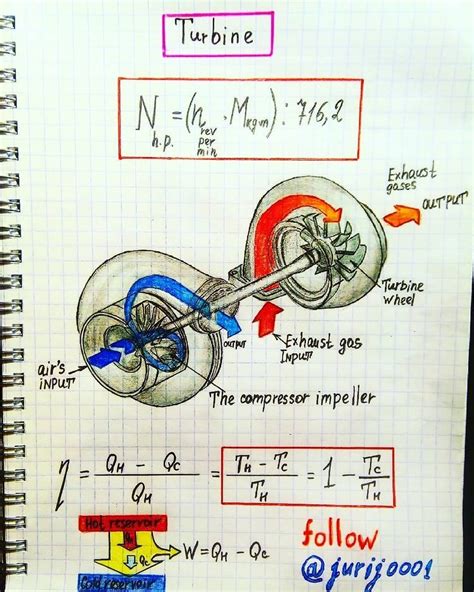 Turbine
N h.p. = (n rev per min · M kgm) : 716,2
Exhaust gases
OUTPUT
Turbine wheel
OUTPUT
Exhaust gas
INPUT
air's
INPUT
The compressor impeller
η = (Q_H - Q_C) / Q_H = (T_H - T_C) / T_H = 1 - T_C / T_H
Hot reservoir
Q_H
Q_C
W = Q_H - Q_C
Cold reservoir
follow
@jurij0001